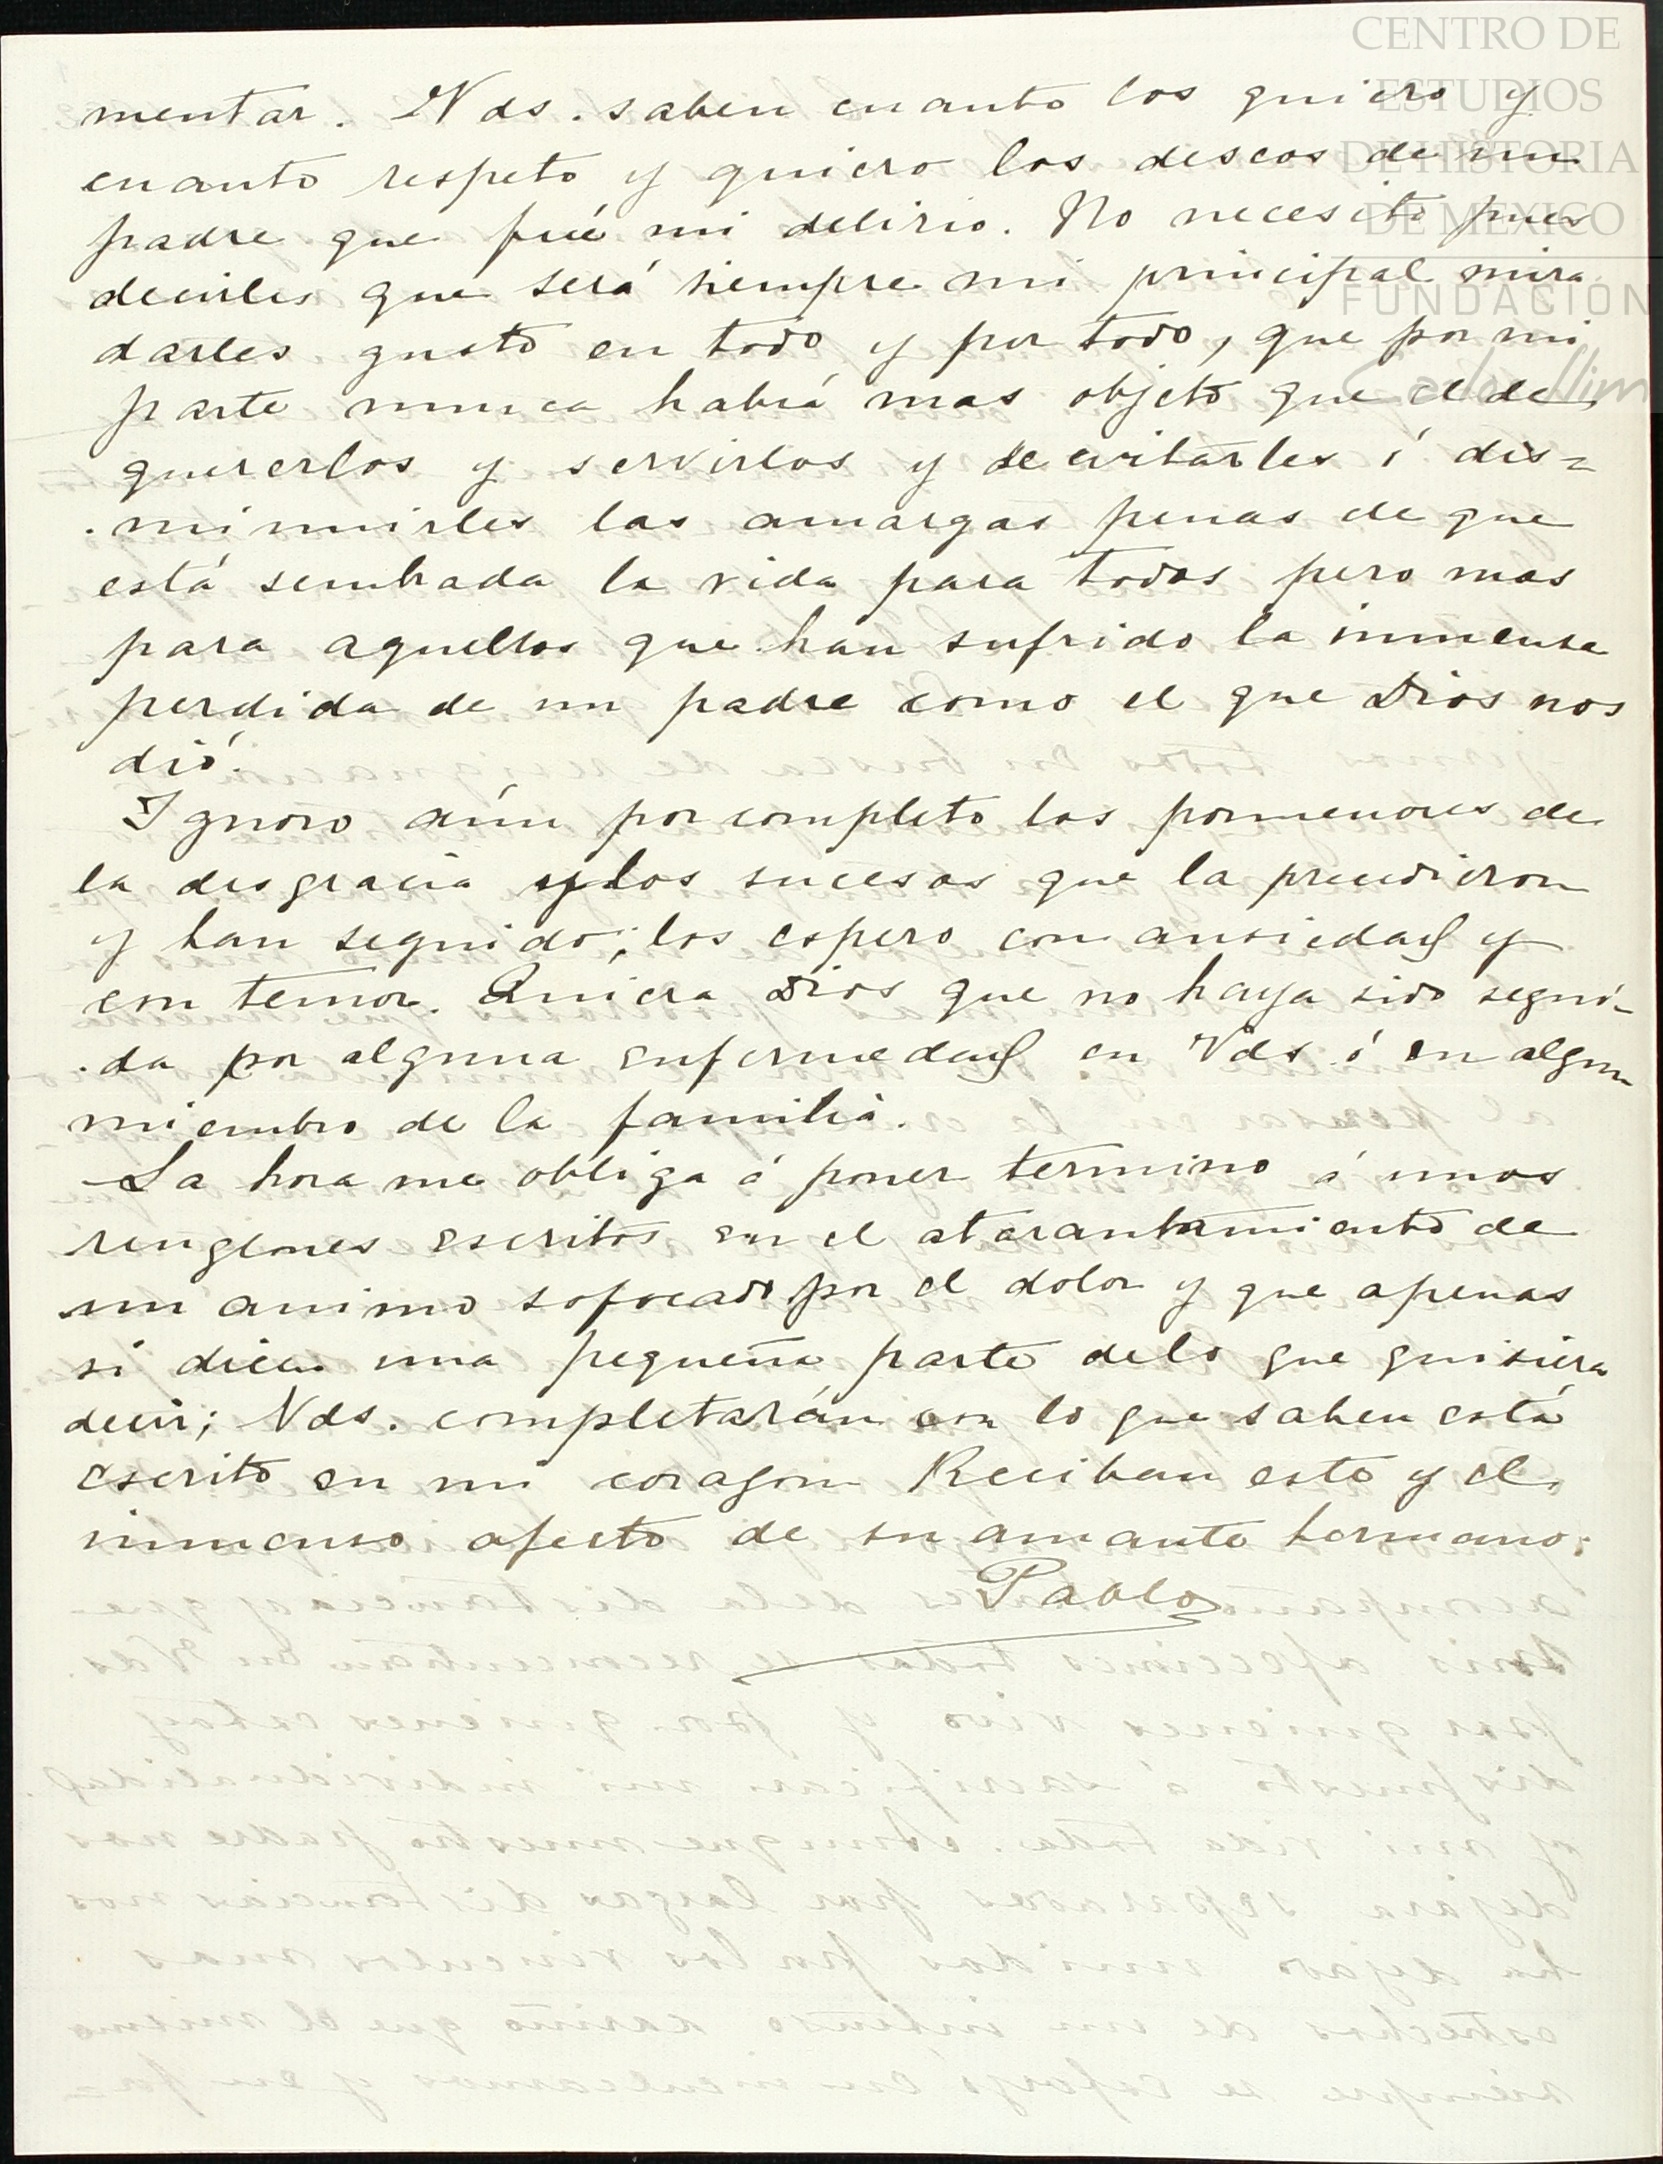 CENTRO DE
ESTUDIOS
DE HISTORIA
DE MEXICO
FUNDACIÓN
mentar. Vds. saben cuanto los quiero y
cuanto respeto y quiero los deseos de un
padre que fué mi delirio. No necesito pues
decirles que será siempre mi principal mira
darles gusto en todo y por todo, que por mi
parte nunca habrá mas objeto que el de
quererlos y servirlos y de evitarles ó dis=
minuirles las amargas penas de que
está sembrada la vida para todos pero mas
para aquellos que han sufrido la inmensa
perdida de un padre como el que Dios nos
dió.
Ignoro aún por completo los pormenores de
la desgracia y los sucesos que la precedieron
y han seguido; los espero con ansiedad y
con temor. Quiera Dios que no haya sido segui-
da por alguna enfermedad en Vds. ó en algun
miembro de la familia.
La hora me obliga á poner termino á unos
renglones escritos en el atarantamiento de
un animo sofocado por el dolor y que apenas
si dicen una pequeña parte de lo que quisiera
decir; Vds. completarán con lo que saben está
escrito en mi corazon Reciban este y el
inmenso afecto de su amante hermano.
Pablo